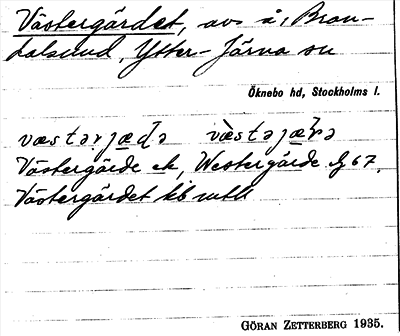 Västergärdet, avs å, Bran-
dalsund, Ytter-Järna sn
Öknebo hd, Stockholms l.
væstərjæɖə væ̀stəjæɽə
Västergärde ek, Westergärde Jg 67,
Västergärdet kb mtl
GÖRAN ZETTERBERG 1935.